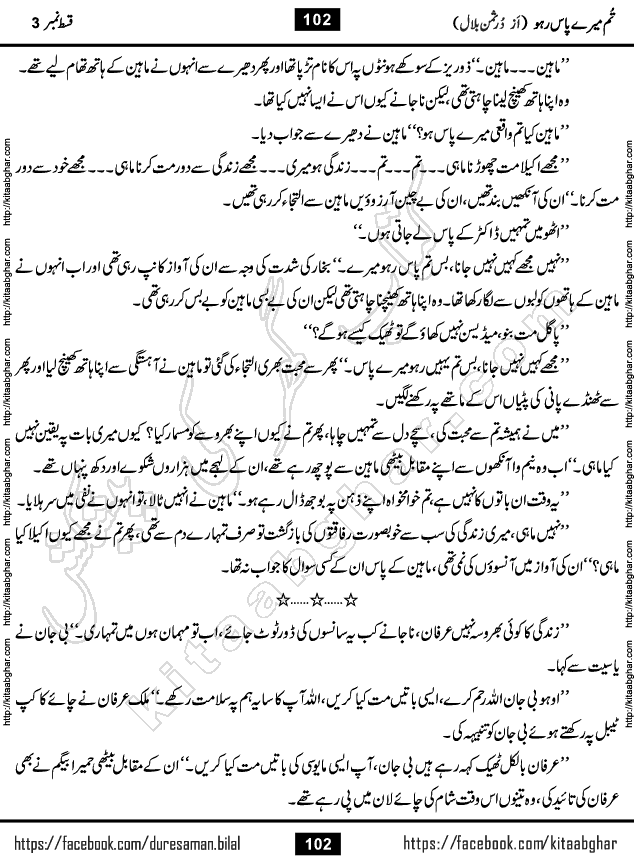 تُم میرے پاس رہو (از دُرِثمن بلال) 102 قسط نمبر 3
’’ماہین۔۔۔ماہین۔‘‘ ذوریز کے سوکھے ہونٹوں پہ اس کا نام تڑپا تھا اور پھر دھیرے سے انہوں نے ماہین کے ہاتھ تھام لیے تھے۔
وہ اپنا ہاتھ کھینچ لینا چاہتی تھی، لیکن نا جانے کیوں اس نے ایسا نہیں کیا تھا۔
’’ماہین کیا تم واقعی میرے پاس ہو؟‘‘ ماہین نے دھیرے سے جواب دیا۔
’’مجھے اکیلا مت چھوڑنا ماہی۔۔۔تم۔۔۔تم۔۔۔زندگی ہو میری۔۔۔مجھے زندگی سے دور مت کرنا ماہی۔۔۔مجھے خود سے دور
مت کرنا۔‘‘ ان کی آنکھیں بند تھیں، ان کی بے چین آرزوؤیں ماہین سے التجاء کر رہی تھیں۔
’’اٹھو میں تمہیں ڈاکٹر کے پاس لے جاتی ہوں۔‘‘
’’نہیں مجھے کہیں نہیں جانا، بس تم پاس رہو میرے۔‘‘ بخار کی شدت کی وجہ سے ان کی آواز کانپ رہی تھی اور اب انہوں نے
ماہین کے ہاتھوں کو لبوں سے لگا رکھا تھا۔ وہ اپنا ہاتھ کھینچنا چاہتی تھی لیکن ان کی بے بسی ماہین کو بے بس کر رہی تھی۔
’’پاگل مت بنو، میڈیسن نہیں کھاؤ گے تو ٹھیک کیسے ہو گے؟‘‘
’’مجھے کہیں نہیں جانا، بس تم یہیں رہو میرے پاس۔‘‘ پھر سے محبت بھری التجاء کی گئی تو ماہین نے آہستگی سے اپنا ہاتھ کھینچ لیا اور پھر
سے ٹھنڈے پانی کی پٹیاں اس کے ماتھے پہ رکھنے لگیں۔
’’میں نے ہمیشہ تم سے محبت کی، سچے دل سے تمہیں چاہا، پھر تم نے کیوں اپنے بھروسے کو مسمار کیا؟ کیوں میری بات پہ یقین نہیں
کیا ماہی۔‘‘ اب وہ نیم وا آنکھوں سے اپنے مقابل بیٹھی ماہین سے پوچھ رہے تھے، ان کے لہجے میں ہزاروں شکوے اور دکھ پنہاں تھے۔
’’یہ وقت ان باتوں کا نہیں ہے، تم خوامخواہ اپنے ذہن پہ بوجھ ڈال رہے ہو۔‘‘ ماہین نے انہیں ٹالا، تو انہوں نے نفی میں سر ہلایا۔
’’نہیں ماہی، میری زندگی کی سب سے خوبصورت رفاقتوں کی بازگشت تو صرف تمہارے دم سے تھی، پھر تم نے مجھے کیوں اکیلا کیا
ماہی؟‘‘ ان کی آواز میں آنسوؤں کی نمی تھی، ماہین کے پاس ان کے کسی سوال کا جواب نہ تھا۔
☆......☆......☆
’’زندگی کا کوئی بھروسہ نہیں عرفان، نا جانے کب یہ سانسوں کی ڈور ٹوٹ جائے، اب تو مہمان ہوں میں تمہاری۔‘‘ بی جان نے
یاسیت سے کہا۔
’’اوہو بی جان اللہ رحم کرے، ایسی باتیں مت کیا کریں، اللہ آپ کا سایہ ہم پہ سلامت رکھے۔‘‘ ملک عرفان نے چائے کا کپ
ٹیبل پہ رکھتے ہوئے بی جان کو تنبیہہ کی۔
’’عرفان بالکل ٹھیک کہہ رہے ہیں بی جان، آپ ایسی مایوسی کی باتیں مت کیا کریں۔‘‘ ان کے مقابل بیٹھی حمیرا بیگم نے بھی
عرفان کی تائید کی، وہ تینوں اس وقت شام کی چائے لان میں پی رہے تھے۔
https://facebook.com/duresaman.bilal 102 https://facebook.com/kitaabghar
http://kitaabghar.com http://kitaabghar.com http://kitaabghar.com http://kitaabghar.com http://kitaabghar.com http://kitaabghar.com
http://kitaabghar.com http://kitaabghar.com http://kitaabghar.com http://kitaabghar.com http://kitaabghar.com http://kitaabghar.com
کتاب گھر کی پیشکش
kitaabghar.com